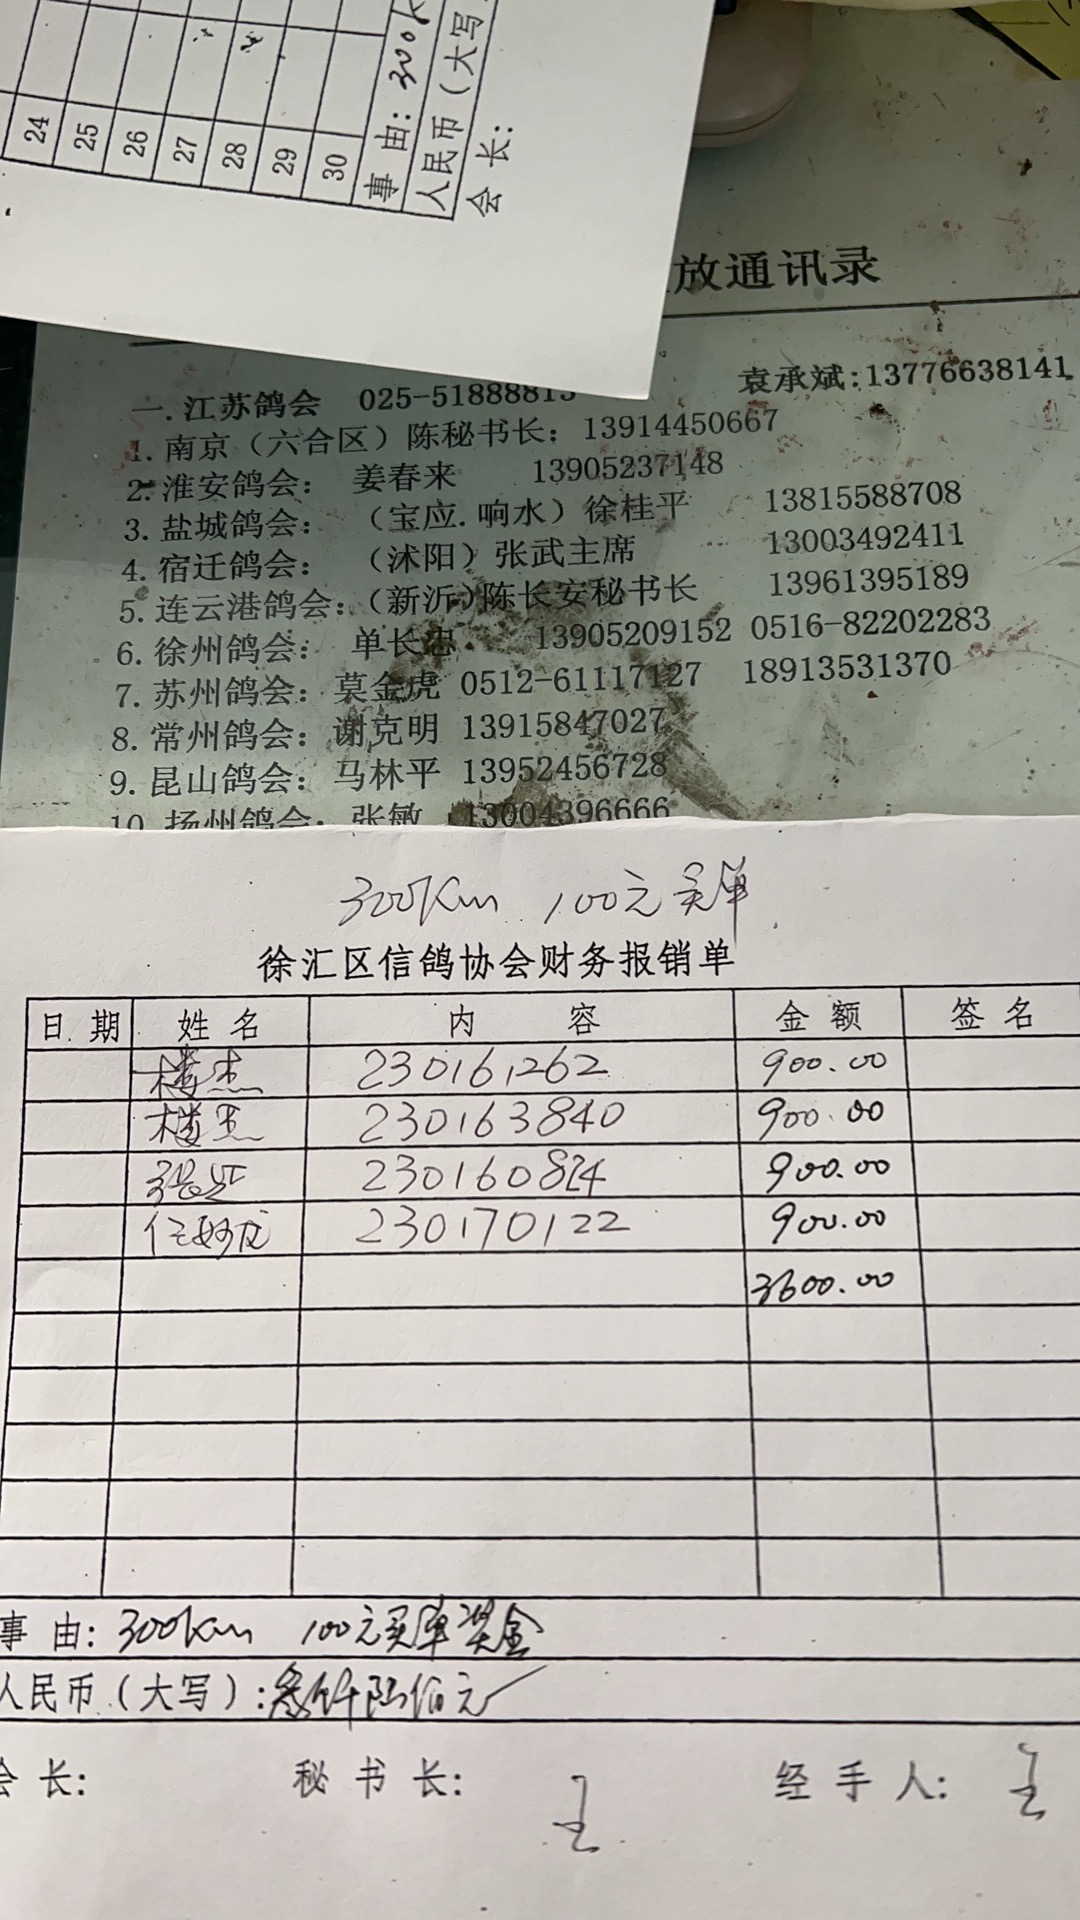 24
25
26
27
28
29
30
事 由: 300k
人民币（大写
会 长:
放通讯录
一. 江苏鸽会 025-51888815 袁承斌:13776638141
1. 南京（六合区）陈秘书长: 13914450667
2. 淮安鸽会: 姜春来 13905237148
3. 盐城鸽会: （宝应.响水）徐桂平 13815588708
4. 宿迁鸽会: （沭阳）张武主席 13003492411
5. 连云港鸽会:（新沂)陈长安秘书长 13961395189
6. 徐州鸽会: 单长忠 13905209152 0516-82202283
7. 苏州鸽会: 莫金虎 0512-61117127 18913531370
8. 常州鸽会: 谢克明 13915847027
9. 昆山鸽会: 马林平 13952456728
10. 扬州鸽会: 张敏 13004396666
300Km 100元买单
徐汇区信鸽协会财务报销单
日 期 姓 名 内 容 金 额 签 名
楼杰 230161262 900.00
楼杰 230163840 900.00
230160824 900.00
任妙龙 230170122 900.00
3600.00
事 由: 300km 100元买单奖金
人民币（大写）:叁仟陆佰元
会 长: 秘 书 长: 经 手 人: